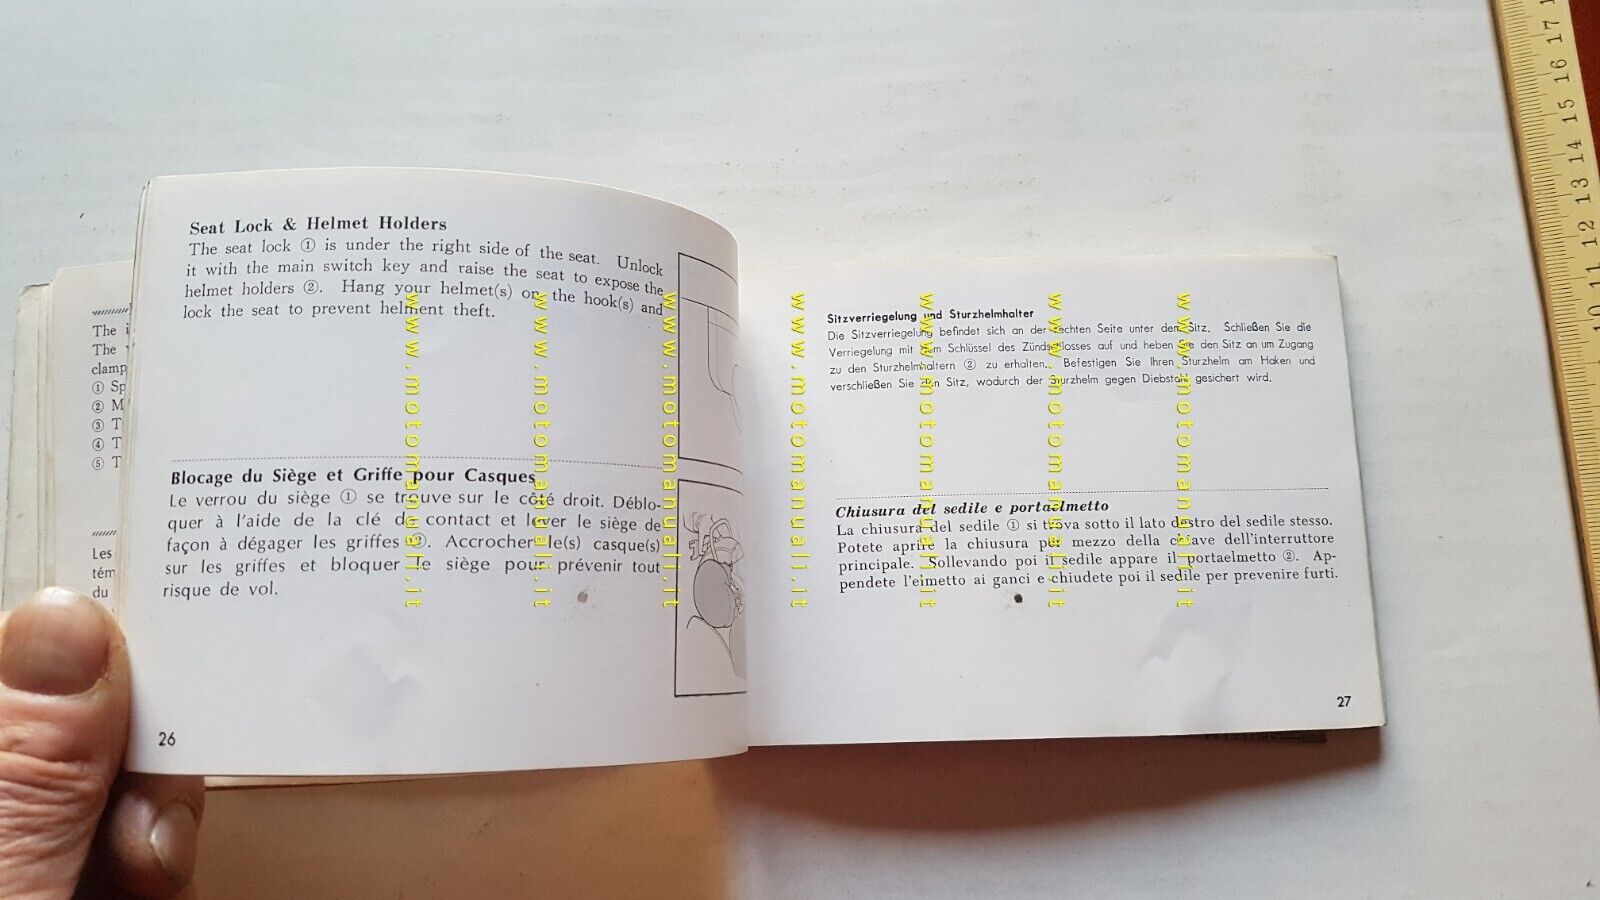 Seat Lock & Helmet Holders
The seat lock ① is under the right side of the seat. Unlock
it with the main switch key and raise the seat to expose the
helmet holders ②. Hang your helmet(s) on the hook(s) and
lock the seat to prevent helment theft.
Blocage du Siège et Griffe pour Casques
Le verrou du siège ① se trouve sur le côté droit. Déblo-
quer à l'aide de la clé de contact et lever le siège de
façon à dégager les griffes ②. Accrocher le(s) casque(s)
sur les griffes et bloquer le siège pour prévenir tout
risque de vol.
26
The
The
clamp
① Sp
② M
③ T
④ T
⑤ T
Les
tém
du
Sitzverriegelung und Sturzhelmhalter
Die Sitzverriegelung befindet sich an der rechten Seite unter dem Sitz. Schließen Sie die
Verriegelung mit dem Schlüssel des Zündschlosses auf und heben Sie den Sitz an um Zugang
zu den Sturzhelmhaltern ② zu erhalten. Befestigen Sie Ihren Sturzhelm am Haken und
verschließen Sie den Sitz, wodurch der Sturzhelm gegen Diebstahl gesichert wird.
Chiusura del sedile e portaelmetto
La chiusura del sedile ① si trova sotto il lato destro del sedile stesso.
Potete aprire la chiusura per mezzo della chiave dell'interruttore
principale. Sollevando poi il sedile appare il portaelmetto ②. Ap-
pendete l'eimetto ai ganci e chiudete poi il sedile per prevenire furti.
27
www.motomanuali.it
www.motomanuali.it
www.motomanuali.it
www.motomanuali.it
www.motomanuali.it
www.motomanuali.it
www.motomanuali.it
10 11 12 13 14 15 16 17